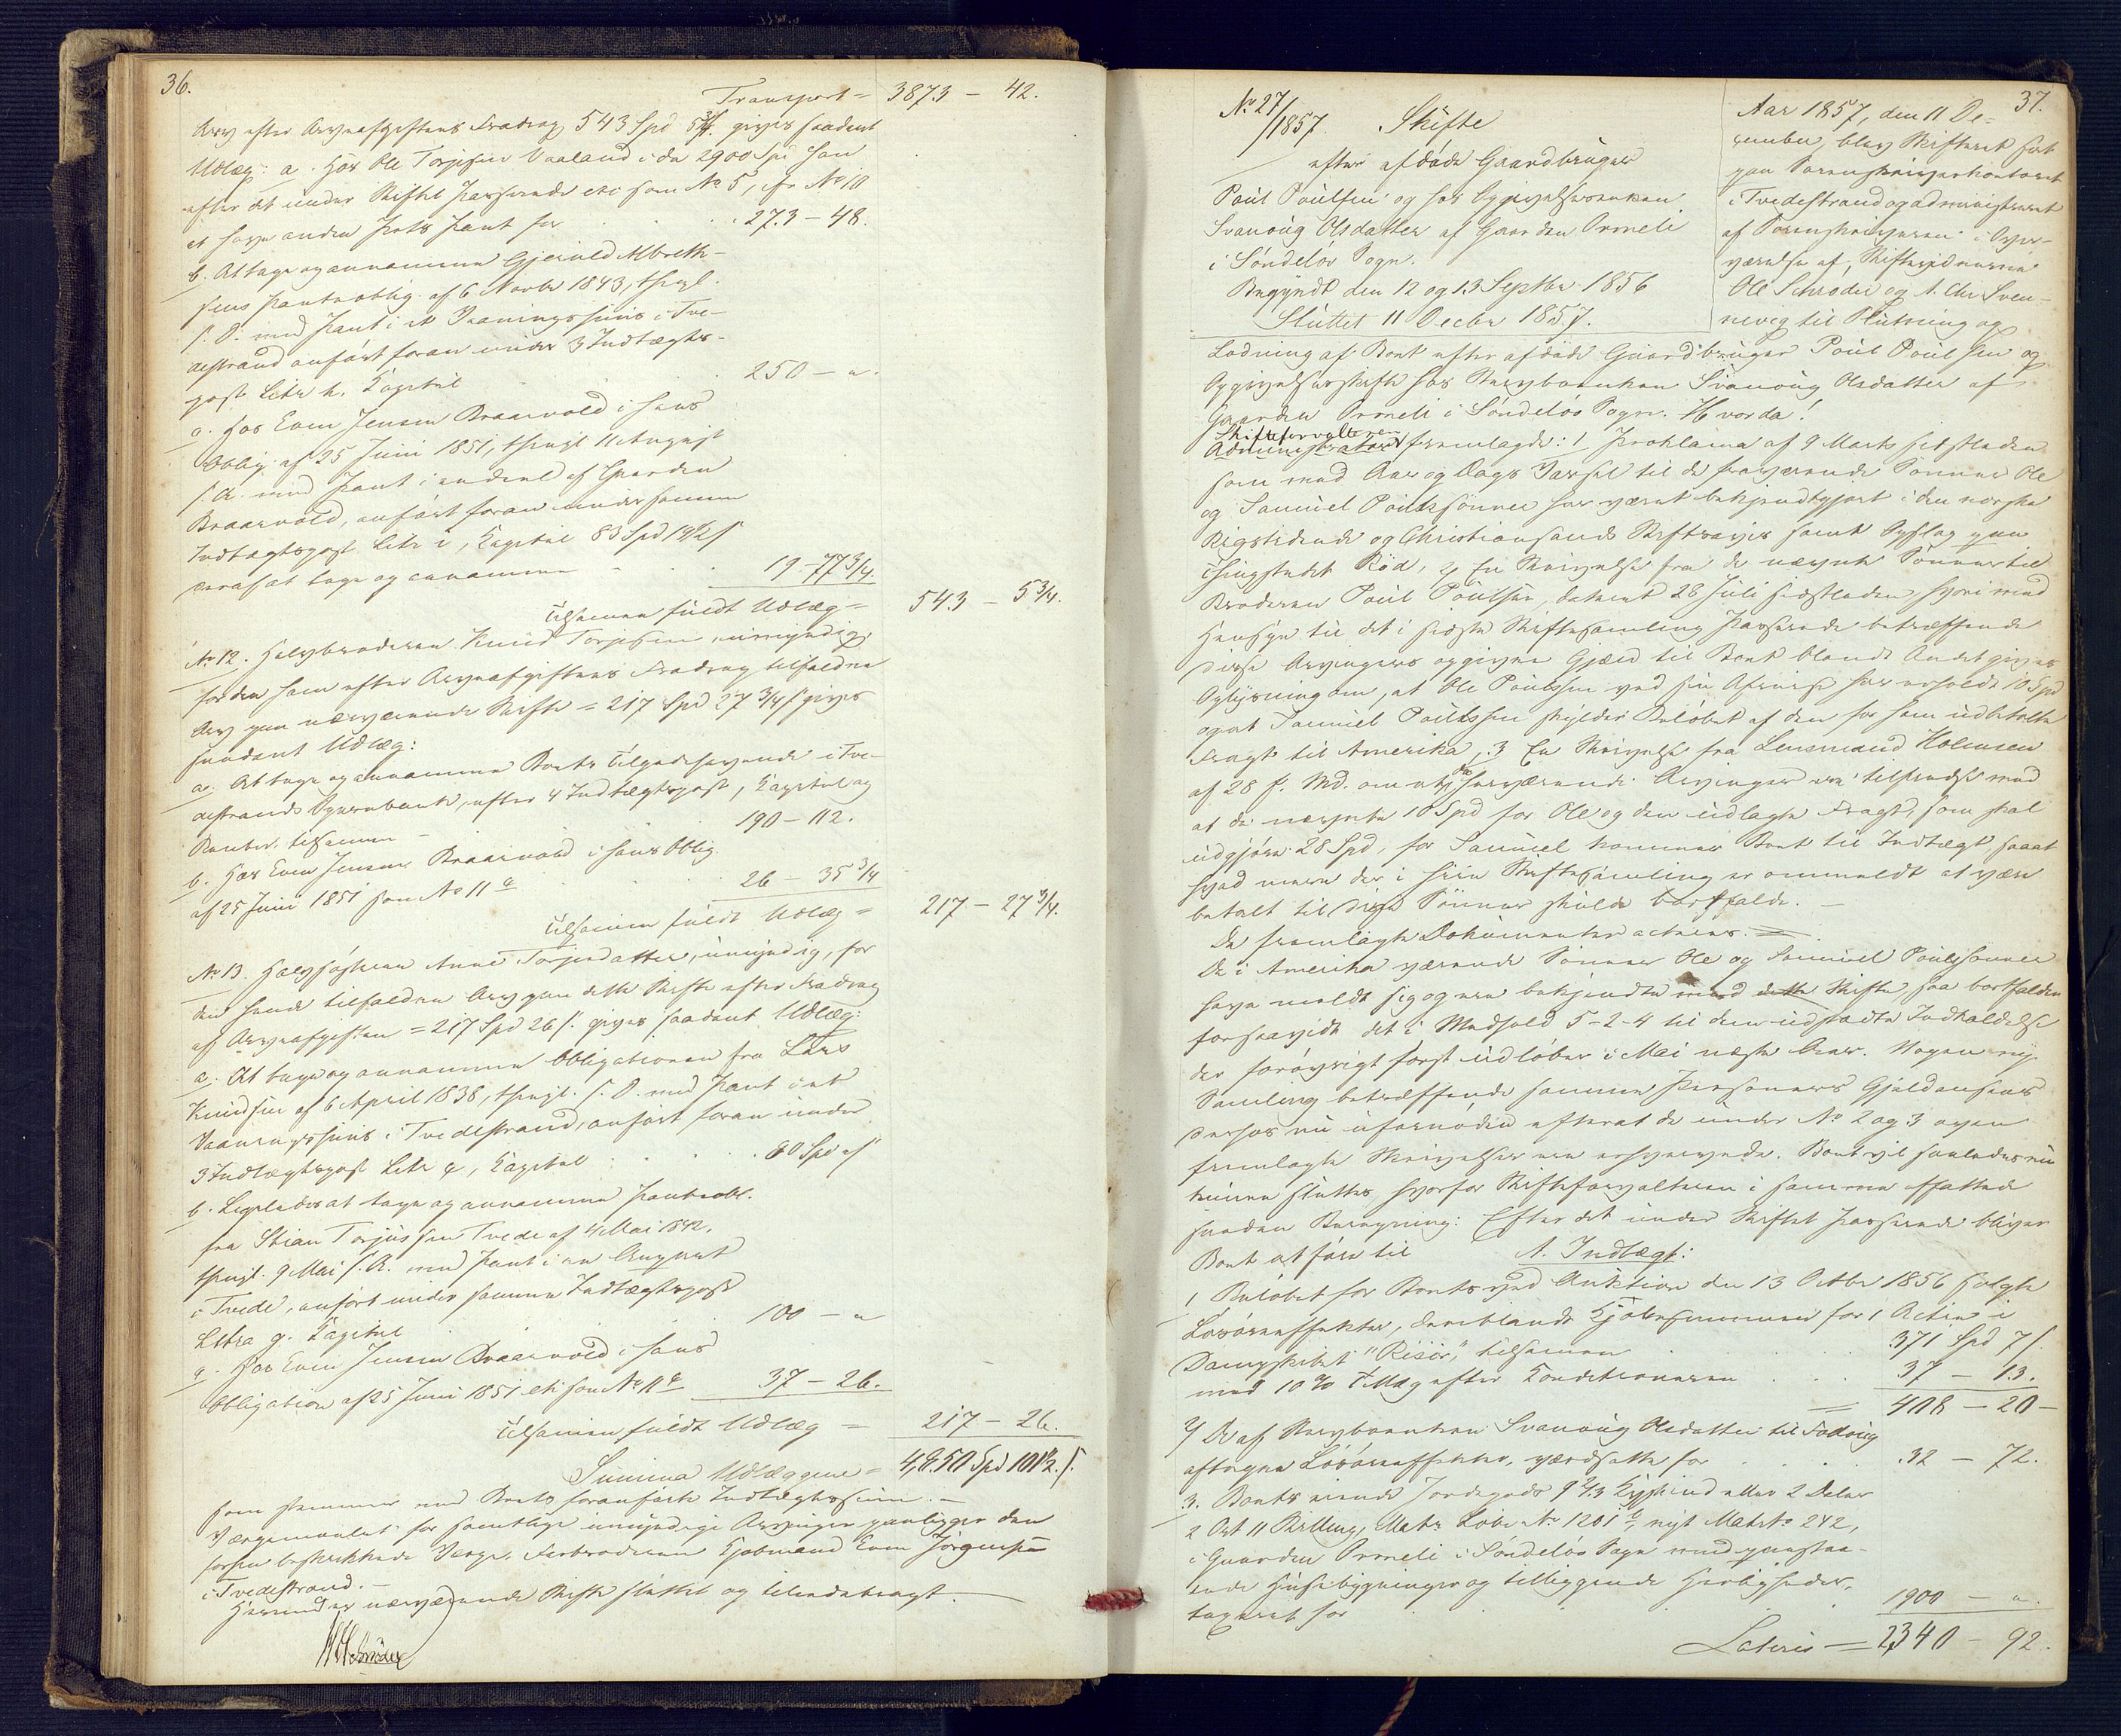 36.
Transport = 3873 - 42.
Arv efter Arveafgiftens Fradrag 543 Spd 5¾ ß. gives saadant
Udlæg: a. Hos Ole Torjesen Vaaland i de 2900 Spd han
efter det under Skiftet Passerede etc som No 5, cfr No 10
et have anden Prts Pant for . . . 273 - 48.
b. At tage og annamme Gjeruld Albreth-
sens Pantoblig. af 6 Novbr 1843, thingl.
s. D. med Pant i et Vaaningshuus i Tve-
destrand anført foran under 3 Indtægts-
post Litr. h. Capital . . . 250 - "
c. Hos Even Jensen Braarvold i hans
Oblig. af 25 Juni 1851, thingl 11 August
s. A. med Pant i endeel af Gaarden
Braarvold, anført foran under samme
Indtægtspost Litr. i, Capital 83 Spd 19½ ß
deraf at tage og annamme . . . 19 77¾
Tilsammen fuldt Udlæg = 543 - 5¾.
No 12. Halvbroderen Knud Torjesen, umyndig,
for den ham efter Arveafgiftens Fradrag tilfaldne
Arv paa nærværende Skifte = 217 Spd 27¾ ß gives
saadant Udlæg:
a. At tage og annamme Boets Tilgodehavende i Tve-
destrands Sparebank, efter 4 Indtægtspost, Capital og
Renter tilsammen - 190 - 112.
b. Hos Even Jensen Braarvold i hans Oblig.
af 25 Juni 1851 som No 11 c . . . 26 - 35¾
Tilsammen fuldt Udlæg = 217 - 27¾.
No 13. Halvsøsteren Anne Torjesdatter, umyndig, for
den hende tilfaldne Arv paa dette Skifte efter Fradrag
af Arveafgiften = 217 Spd 26 ß. gives saadant Udlæg:
a. At tage og annamme Obligationen fra Lars
Knudsen af 6 April 1838, thingl. s. D. med Pant i et
Vaaningshuus i Tvedestrand, anført foran under
3 Indtægtspost Litr. e, Capital . . . 80 Spd " ß
b. Ligeledes at tage og annamme Pantoobl.
fra Stian Torjussen Tvede af 4 Mai 1842,
thingl. 9 Mai s. A. med Pant i en Anpart
i Tvede, anført under samme Indtægtspost
Litra g. Capital . . . 100 - "
c. Hos Even Jensen Braarvold i hans
Obligation af 25 Juni 1851 etc som No 11 c 37 - 26.
Tilsammen fuldt Udlæg = 217 - 26.
Summa Udlæggene = 4,850 Spd 101½ ß.
som stemmer med Boets foranførte Indtægtssum. -
Værgemaalet for samtlige umyndige Arvinger paaligger den
forhen beskikkede Værge, Farbroderen Kjøbmand Even Jørgensen
i Tvedestrand. -
Hermed er nærværende Skifte sluttet og tilendebragt.
37.
No 27/1857. Skifte
efter afdøde Gaardbruger
Poul Poulsen og hos Opgivelsesenken
Svanoug Olsdatter af Gaarden Ormeli
i Søndeløv Sogn.
Begyndt den 12 og 13 Septbr 1856
Sluttet 11 Decbr 1857.
Aar 1857, den 11 De-
cember, blev Skifteret sat
paa Sorenskriverkontoret
i Tvedestrand og administreret
af Sorenskriveren i Over-
værelse af, Skiftevidnerne
Ole Schrøder og A. Chr Sven-
neveg til Slutning og
Lodning af Boet efter afdøde Gaardbruger Poul Poulsen og
Opgivelsesskifte hos Stervboenken Svanoug Olsdatter af
Gaarden Ormeli i Søndeløv Sogn. Hvorda!
Skifteforvalteren
Administrator fremlagde: 1, Proklama af 9 Marts sidstleden
som med Aar og Dags Varsel til de fraværende Sønner Ole
og Samuel Poulssønner har været bekjendtgjort i den norske
Rigstidende og Christiansands Stiftsavis samt Opslag paa
Thingstedet Röd, 2, En Skrivelse fra de nævnte Sønner til
Broderen Poul Poulsen, dateret 28 Juli sidstleden hvori med
Hensyn til det i sidste Skiftesamling Passerede betræffende
disse Arvingers opgivne Gjæld til Boet blandt Andet gives
Oplysning om, at Ole Poulssen ved sin Afreise har erholdt 10 Spd
og at Samuel Poulssen skylder Beløbet af den for ham udbetalte
Fragt til Amerika, 3, En Skrivelse fra Lensmand Holmsen
af 28 f. Md. om at de herværende Arvinger ere tilfreds med
at de nævnte 10 Spd for Ole og den udlagte Fragt, som skal
udgjøre 28 Spd, for Samuel kommer Boet til Indtægt, saa at
hvad mere der i hiin Skiftesamling er ommeldt at være
betalt til disse Sønner skulde bortfalde. -
De fremlagte Dokumenter acteres. =
De i Amerika værende Sønner Ole og Samuel Poulssønner
have meldt sig og ere bekjendte med dette Skifte, saa bortfalder
forsaavidt det i Medhold 5-2-4 til dem udstædte Indkaldelse
der forøvrigt først udløber i Mai næste Aar. Nogen ny
Samling betræffende samme Personers Gjeldansvar
ansees nu ufornøden efterat de under No 2 og 3 oven
fremlagte Skrivelser ere erhvervede. Boet vil saaledes nu
kunne sluttes, hvorfor Skifteforvalteren i samme affattede
saadan Beregning: Efter det under Skiftet Passerede bliver
Boet at føre til A. Indtægt:
1, Beløbet for Boets ved Auktion den 13 Octbr 1856 solgte
Løsøreeffekter, deriblandt Kjøbesummen for 1 Actie i
Dampskibet "Risör," tilsammen . . . 371 Spd 7 ß.
med 10 % Tillæg efter Konditionerne . . . 37 - 13.
= 408 - 20 -
2, De af Stervboenken Svanoug Olsdatter til Fodring
aftagne Løsøreeffekter, værdsatte for . . . 32 - 72.
3. Boets eiende Jordegods 9 2/3 Kalvskind eller 2 Daler
2 Ort 11 Skilling, Matr. Løbe No 1201 c, nyt Matr No 242,
i Gaarden Ormeli i Søndeløv Sogn med paastaa-
ende Huusebygninger og tilliggende Herligheder,
taxeret for . . . 1900 - "
Lateris = 2340 - 92.